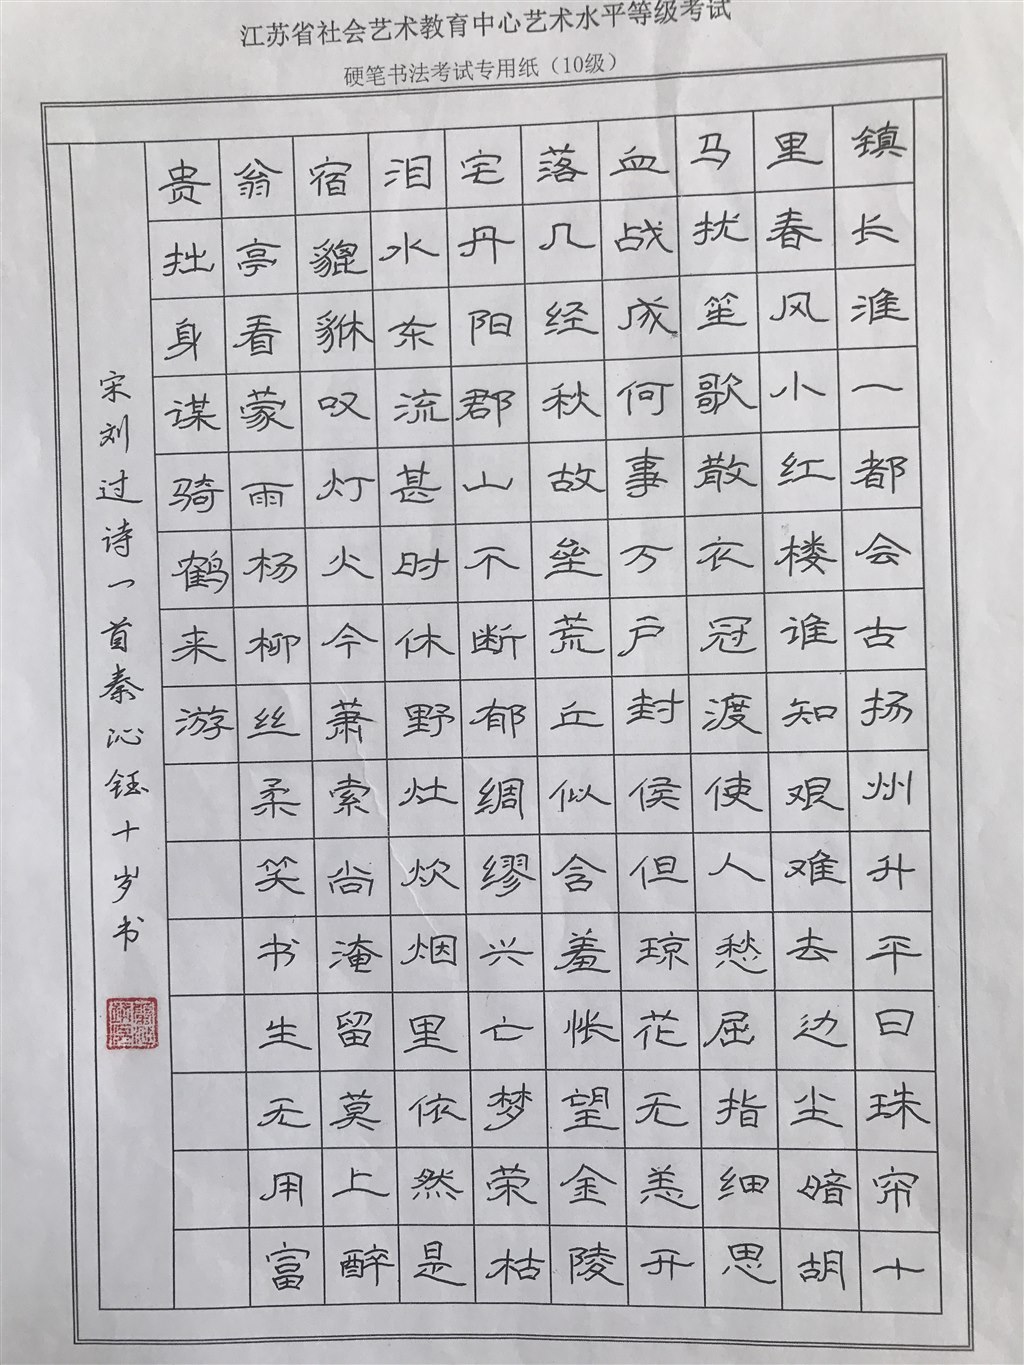 江苏省社会艺术教育中心艺术水平等级考试
硬笔书法考试专用纸（10级）
镇长淮一都会古扬州升平日珠帘十
里春风小红楼谁知艰难去边尘暗胡
马扰笙歌散衣冠渡使人愁屈指细思
血战成何事万户封侯但琼花无恙开
落几经秋故垒荒丘似含羞怅望金陵
宅丹阳郡山不断郁绸缪兴亡梦荣枯
泪水东流甚时休野灶炊烟里依然是
宿貔貅叹灯火今萧索尚淹留莫上醉
翁亭看蒙雨杨柳丝柔笑书生无用富
贵拙身谋骑鹤来游
宋刘过诗一首秦沁钰十岁书